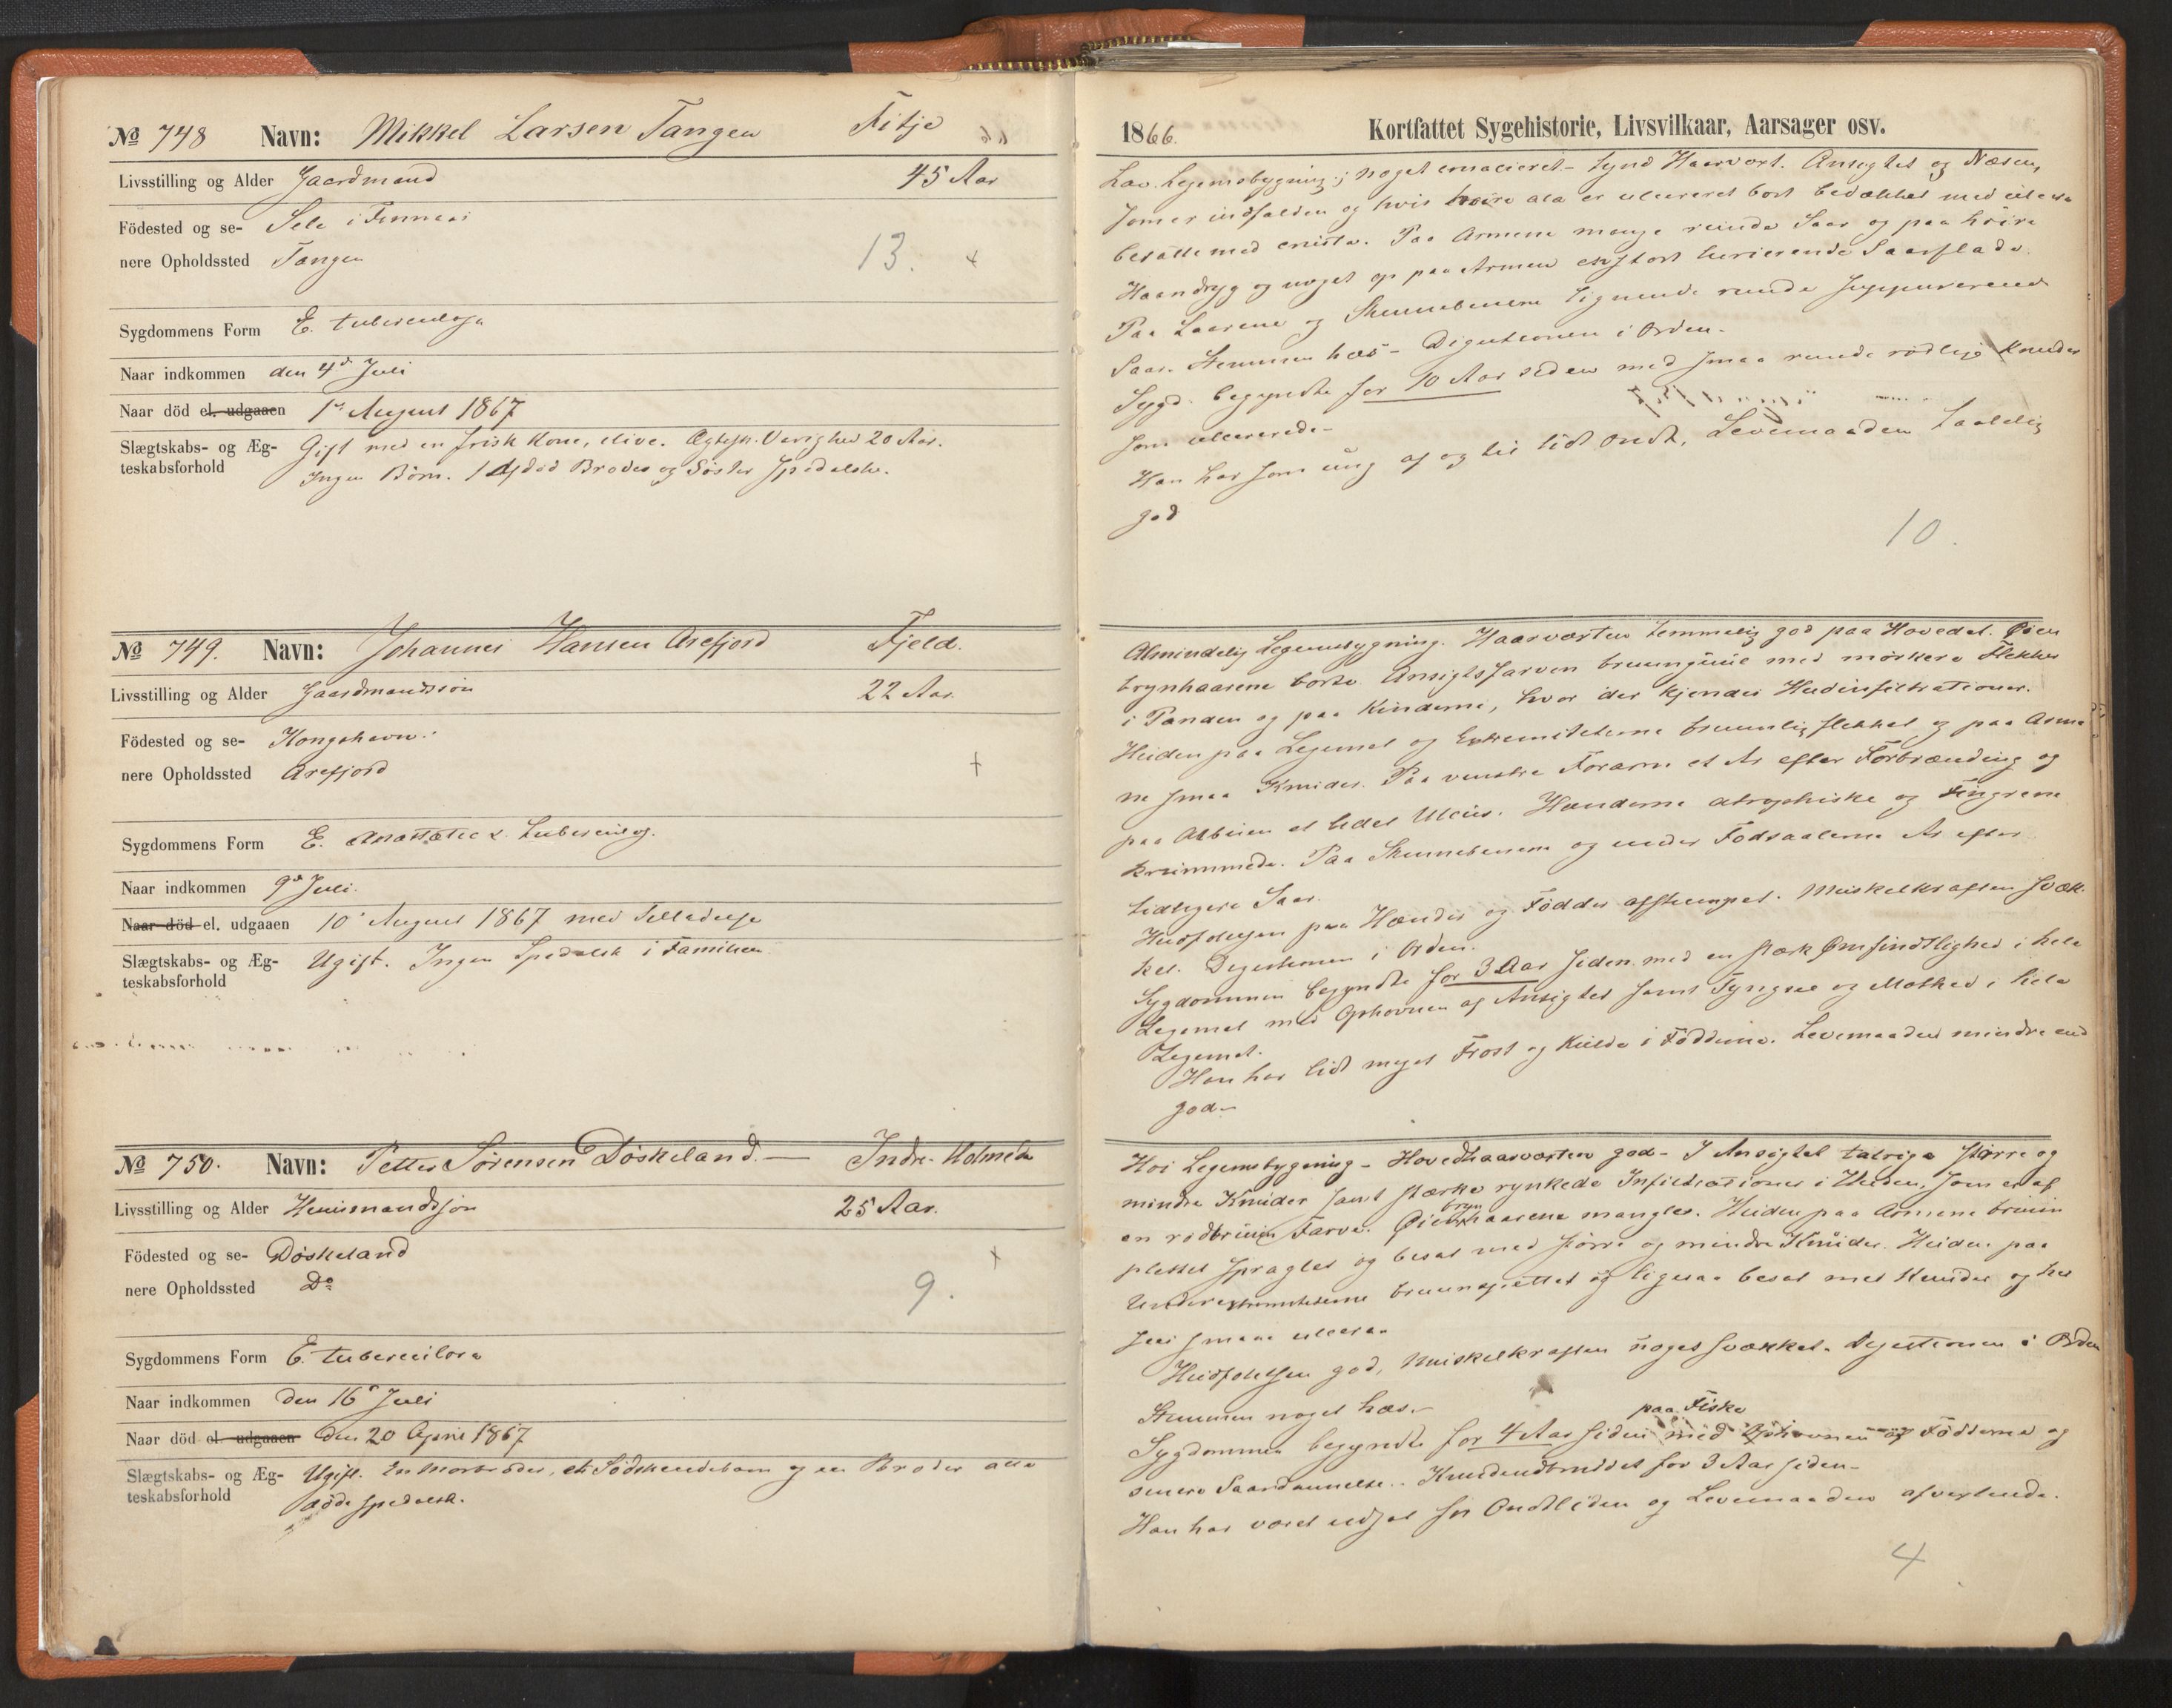 № 748 Navn: Mikkel Larsen Tangen Fitje
Livsstilling og Alder Gaardmand 45 Aar
Födested og se- Sele i Finnaas
nere Opholdssted Tangen
13. +
Sygdommens Form E. tuberculosa
Naar indkommen den 4de Juli
Naar död el. udgaaen 1ste August 1867
Slægtskabs- og Æg- Gift med en frisk Kone, ilive. Ægtesk. Varighed 20 Aar.
teskabsforhold Ingen Börn. 1 Afdöd Broder og Söster spedalske.
№ 749. Navn: Johannes Hansen Arefjord Fjeld.
Livsstilling og Alder Gaardmandssön 22 Aar.
Födested og se- Kongshavn
nere Opholdssted Arefjord
+
Sygdommens Form E. anæsthetic & tuberculos.
Naar indkommen 9de Juli.
Naar död el. udgaaen 10 August 1867 med Tilladelse
Slægtskabs- og Æg- Ugift. Ingen Spedalsk i Familien
teskabsforhold
№ 750. Navn: Petter Sörensen Döskeland. — Indre Holmedal
Livsstilling og Alder Huusmandssön 25 Aar.
Födested og se- Döskeland +
nere Opholdssted Do
9.
Sygdommens Form E. tuberculosa
Naar indkommen den 16de Juli
Naar död el. udgaaen den 20 April 1867
Slægtskabs- og Æg- Ugift. En Morbroder, et Södskendebarn og en Broder alle
teskabsforhold döde spedalsk.
1866. Kortfattet Sygehistorie, Livsvilkaar, Aarsager osv.
Lav Legemsbygning; noget emacieret - tynd Haarvext. Ansigtet og Næsen,
som er indfalden og hvis höire ala er ulcereret bort bedækket med ulcera
besatte med crusta. Paa Armene mange runde Saar og paa höire
Haandryg og noget op paa Armen en stort Saarflade.
Paa Laarene og Skinnebenene lignende runde suppurerende
Saar. Stemmen hæs - Digestionen i Orden -
Sygd. begyndte for 10 Aar siden med smaa runde rödlige Knuder
som ulcererede -
Han har som ung af og til lidt ondt, Levemaaden taalelig
god
10.
Almindelig Legemsbygning. Haarvæxten temmelig god paa Hovedet. Öien
brynhaarene borte. Ansigtsfarven bruungule med mörkere Flekker
i Panden og paa Kinderne, hvor der kjendes Hudinfiltrationer.
Huden paa Legemet og Extremiteterne bruunlig flekket og paa Arme
ne smaa Knuder. Paa venstre Forarm et Ar efter Forbrænding og
paa Albuen et lidet Ulcus. Hænderne atrophiske og Fingrene
krummede. Paa Skinnebenene og under Fodsaalerne Ar efter
tidligere Saar.
Hudfölelsen paa Hænder og Födder afstumpet. Muskelkraften svæk-
ket. Digestionen i Orden.
Sygdommen begyndte for 3 Aar siden med en stærk Ömfindtlighed i hele
Legemet med Ophovnen af Ansigtet samt Tyngsel og Mathed i hele
Legemet.
Han har lidt meget Frost og Kulde i Födderne. Levemaaden mindre end
god -
Höi Legemsbygning - Hovedhaarvæxten god - I Ansigtet talrige större og
mindre Knuder samt stærke rynkede Infiltrationer i Huden, som er af
en rödbruun Farve. Öienbrynhaarene mangler. Huden paa Armene bruun
plettet spraglet og besat med större og mindre Knuder. Huden paa
Underextremiteterne bruunplettet og ligesaa besat med Knuder og hel
smaa ulcera
Hudfölelsen god, Muskelkraften noget svækket. Digestionen i Orden
Stemmen noget hæs. -
Sygdommen begyndte for 4 Aar siden paa Fiske med Ophovnen af Födderne og
senere Saardannelse. Knudeudbruddet for 3 Aar siden -
Han har været udsat for Ondtliden og Levemaaden afvexlende.
4